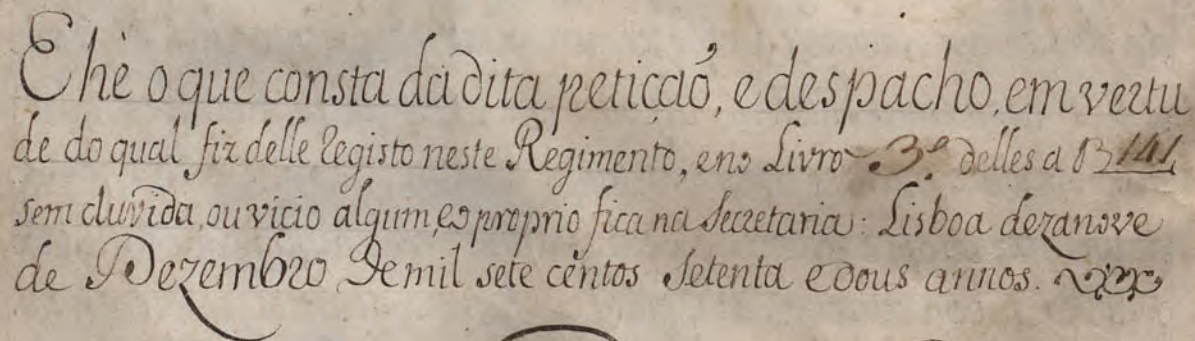 E hè o que consta da dita petiçaõ, e despacho, em vertu
de do qual fiz delle Registo neste Regimento, e no Livro 3.º delles a
141
sem duvida, ou vicio algum, e o proprio fica na Secretaria: Lisboa dezanove
de Dezembro de mil sete centos setenta e dous annos.